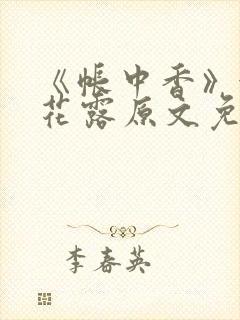 《帐中香》
花露原文免
李春英